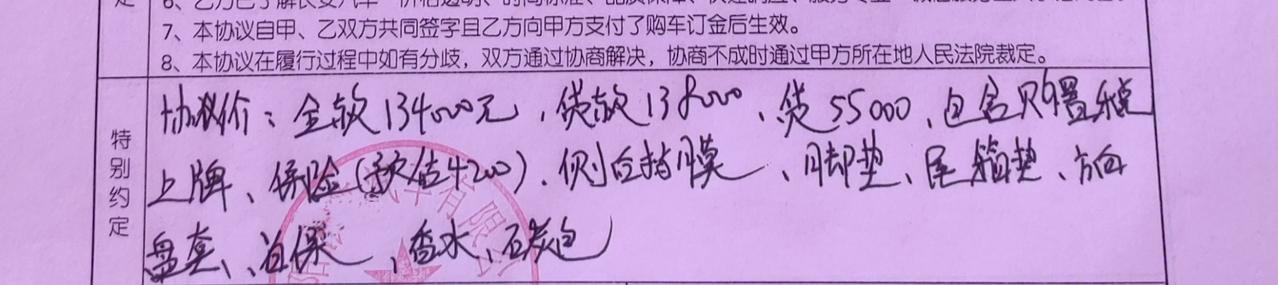 定
7、本协议自甲、乙双方共同签字且乙方向甲方支付了购车订金后生效。
8、本协议在履行过程中如有分歧，双方通过协商解决，协商不成时通过甲方所在地人民法院裁定。
特别约定
协议价：全款134000元，贷款138000，贷55000，包含购置税
上牌、保险（预估4200）、侧后挡膜、脚垫、尾箱垫、方向
盘套、首保、香水、石炭包